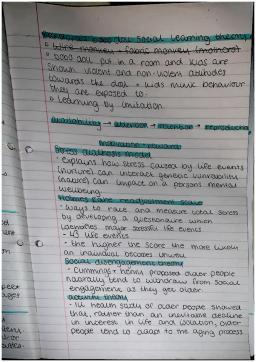 Bandura's bobo doll social learning theory
o wire monkey + fabric monkey (mothers)
o bobo doll put in a room and kids are
shown violent and non-violent attitudes
towards the doll → kids mimic behaviour
they are exposed to.
o Learning by imitation.
Availability → attention → retention → reproducing
Motivation
Stress diathesis model
- explains how stress caused by life events
(nurture) can interact genetic vulnerability
(nature) can impact on a persons mental
wellbeing
Holmes Rahe readjustment scale
- ways to rate and measure total stress
by developing a questionaire which
identifies major stressful life events
- 43 life events
- the higher the score the more likely
an individual becomes unwell
Social disengagement theory
- Cummings + henry proposed older people
naturally tend to withdraw from social
engagement as they get older
activity theory
- UK health study of older people showed
that, rather than an inevitable decline
in interest in life and isolation, older
people tend to adapt to the aging process